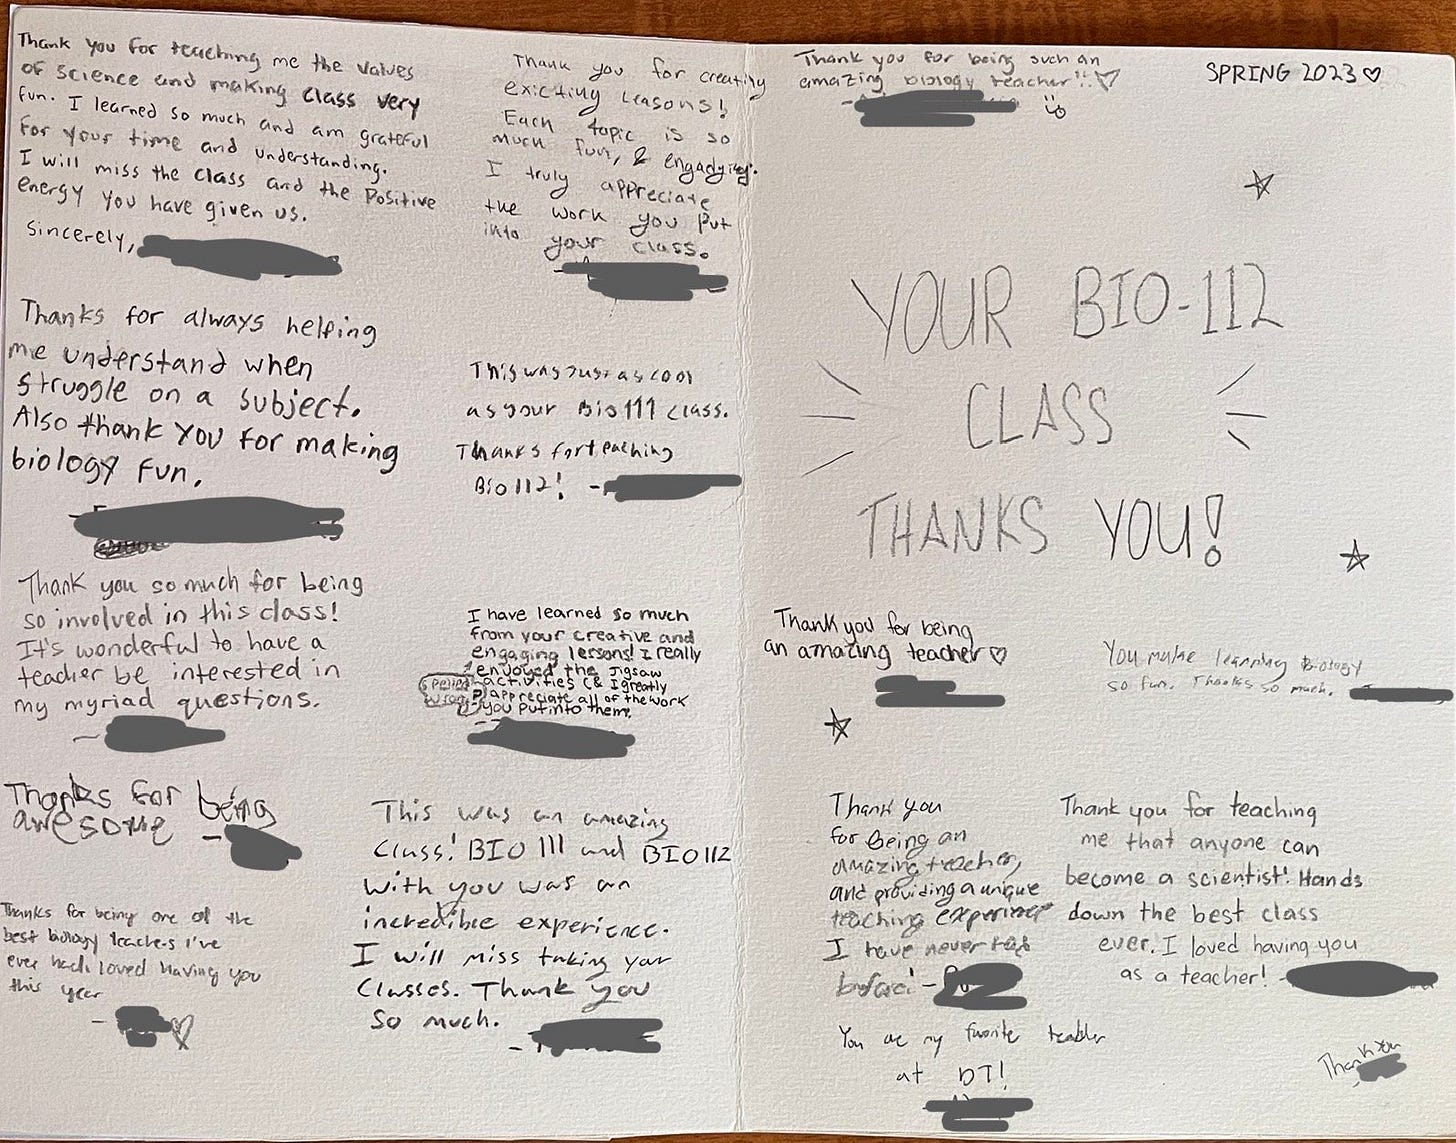 Thank you for teaching me the values
of science and making class very
fun. I learned so much and am grateful
for your time and understanding.
I will miss the class and the Positive
energy you have given us.
Sincerely,
Thank you for creating
exicting leasons!
Each topic is so
much fun, & engadying.
I truly appreciate
the work you put
into your class.
Thanks for always helping
me understand when
struggle on a subject.
Also thank you for making
biology fun.
This was Just as cool
as your Bio 111 class.
Thanks for teaching
Bio 112!
Thank you so much for being
so involved in this class!
It's wonderful to have a
teacher be interested in
my myriad questions.
I have learned so much
from your creative and
engaging lessons! I really
enjoyed the Jigsaw
activities (& I greatly
appreciate all of the work
you put into them.
Thanks for being
awesome
This was an amazing
Class! BIO 111 and BIO 112
with you was an
incredible experience.
I will miss taking your
Classes. Thank you
so much.
Thanks for being one of the
best biology teachers I've
ever had. loved having you
this year
Thank you for being such an
amazing biology teacher!!
SPRING 2023
YOUR BIO-112
CLASS
THANKS YOU!
Thank you for being
an amazing teacher
You make learning Biology
so fun. Thanks so much.
Thank you
for Being an
amazing teacher,
and providing a unique
teaching experience
I have never had
before!
Thank you for teaching
me that anyone can
become a scientist! Hands
down the best class
ever. I loved having you
as a teacher!
You are my favorite teacher
at DT!
Thank you